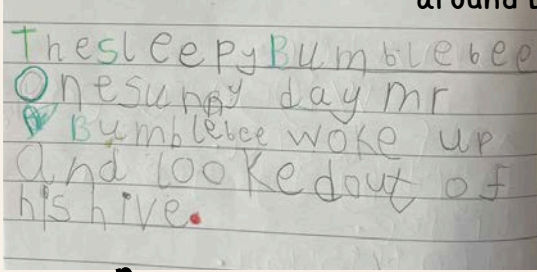 around t
The sleepy Bumblebee
One sunny day mr
Bumblebee woke up
and looked out of
his hive.